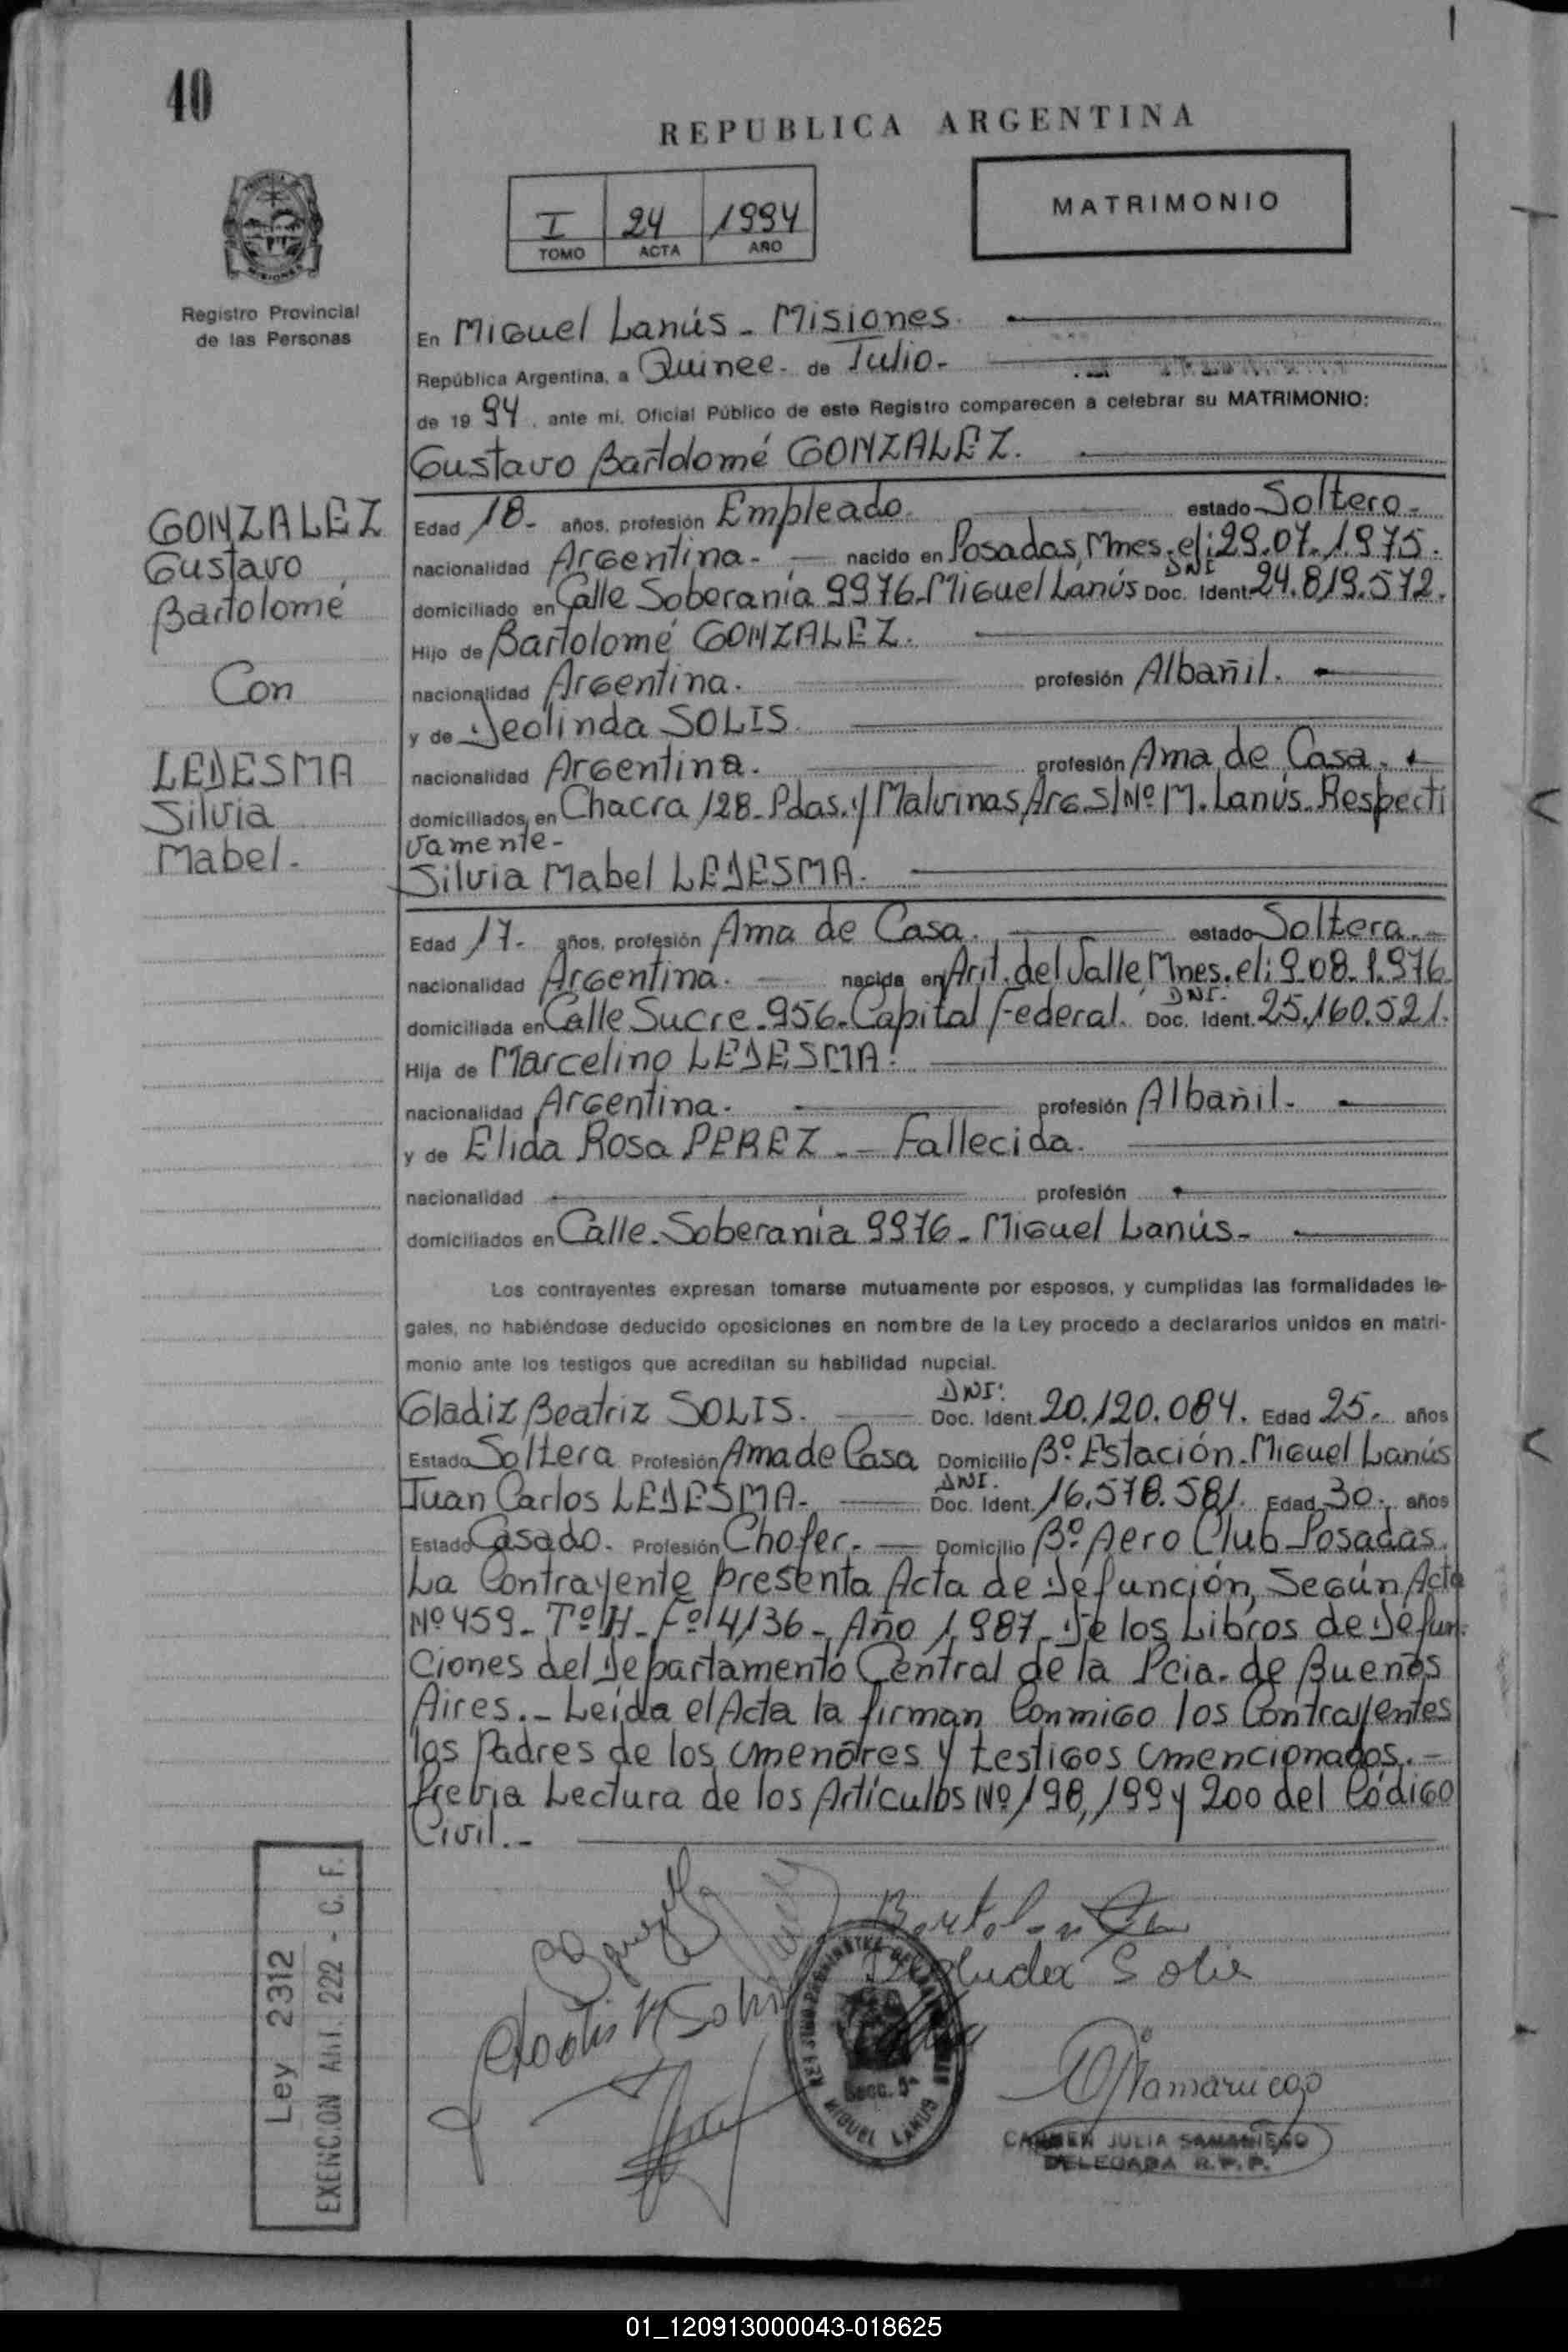 40
REPUBLICA ARGENTINA
I 24 1994
TOMO ACTA AÑO
MATRIMONIO
Registro Provincial
de las Personas
En Miguel Lanús - Misiones.
República Argentina, a Quince - de Julio -
de 1994, ante mi, Oficial Público de este Registro comparecen a celebrar su MATRIMONIO:
Gustavo Bartolomé GONZALEZ.
GONZALEZ
Gustavo
Bartolomé
Con
LEDESMA
Silvia
Mabel -
Edad 18 - años, profesión Empleado. estado Soltero -
nacionalidad Argentina - nacido en Posadas, Mnes. el: 29.07.1975.
domiciliado en Calle Soberanía 9976 - Miguel Lanús DNI Doc. Ident. 24.819.572.
Hijo de Bartolomé GONZALEZ.
nacionalidad Argentina. profesión Albañil.
y de Deolinda SOLIS.
nacionalidad Argentina. profesión Ama de Casa.
domiciliados en Chacra 128 - Pdas. y Malvinas Arg. S/Nº M. Lanús. Respecti
vamente -
Silvia Mabel LEDESMA.
Edad 17 - años, profesión Ama de Casa. estado Soltera. -
nacionalidad Argentina. nacida en Arit. del Valle, Mnes. el: 9-08-1.976.
domiciliada en Calle Sucre - 956 - Capital Federal. DNI. Doc. Ident. 25.160.521.
Hija de Marcelino LEDESMA.
nacionalidad Argentina. profesión Albañil.
y de Elida Rosa PEREZ. - Fallecida.
nacionalidad profesión
domiciliados en Calle - Soberanía 9976 - Miguel Lanús -
Los contrayentes expresan tomarse mutuamente por esposos, y cumplidas las formalidades le-
gales, no habiéndose deducido oposiciones en nombre de la Ley procedo a declararlos unidos en matri-
monio ante los testigos que acreditan su habilidad nupcial.
Gladiz Beatriz SOLIS. DNI: Doc. Ident. 20.120.084. Edad 25 - años
Estado Soltera Profesión Ama de Casa Domicilio Bº. Estación - Miguel Lanús
Juan Carlos LEDESMA - DNI. Doc. Ident. 16.578.581. Edad 30 - años
Estado Casado. Profesión Chofer. - Domicilio Bº. Aero Club - Posadas.
La Contrayente presenta Acta de Defunción, Según Acta
Nº 459 - Tº H - Fº 14/136 - Año 1.987 - De los Libros de Defun-
ciones del Departamento Central de la Pcia. de Buenos
Aires. - Leída el Acta la firman Conmigo los Contrayentes
los Padres de los menores y testigos mencionados. -
Previa Lectura de los Artículos Nº 198, 199 y 200 del Código
Civil. -
Ley 2312
EXENCION ART. 222 - C. F.
Secc. 5ª
MIGUEL LANUS
CARMEN JULIA SAMANIEGO
DELEGADA R.P.P.
01_120913000043-018625